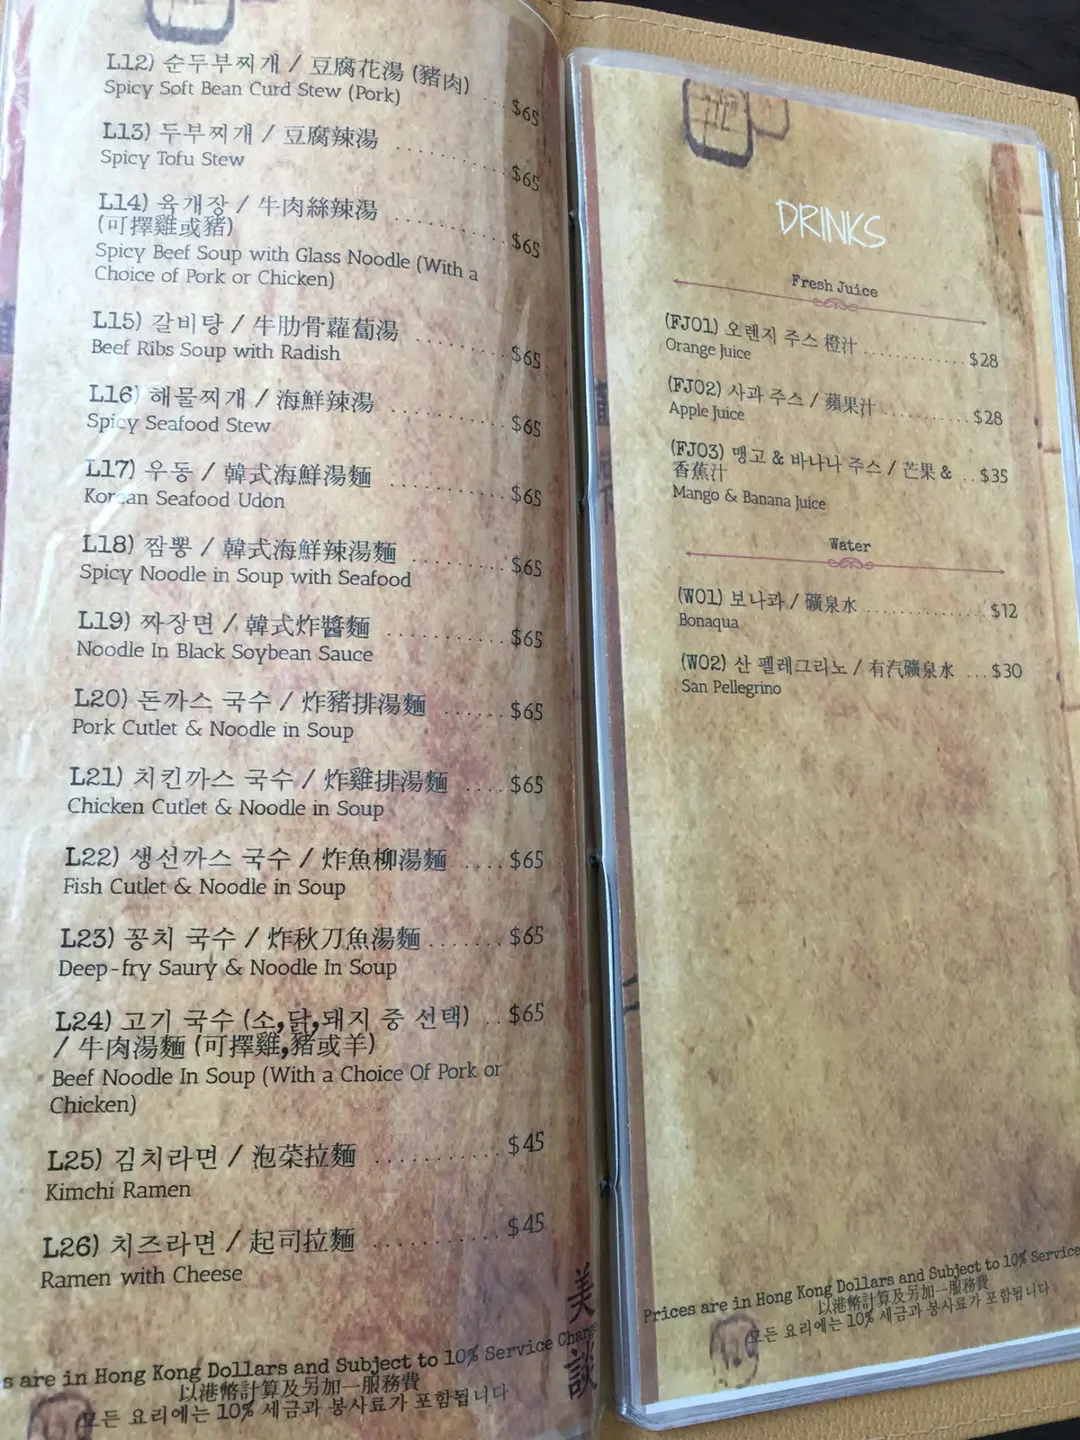 L12) 순두부찌개 / 豆腐花湯 (豬肉) ... $65
Spicy Soft Bean Curd Stew (Pork)
L13) 두부찌개 / 豆腐辣湯 ............ $65
Spicy Tofu Stew
L14) 육개장 / 牛肉絲辣湯 ............ $65
(可擇雞或豬)
Spicy Beef Soup with Glass Noodle (With a
Choice of Pork or Chicken)
L15) 갈비탕 / 牛肋骨蘿蔔湯 .......... $65
Beef Ribs Soup with Radish
L16) 해물찌개 / 海鮮辣湯 ............ $65
Spicy Seafood Stew
L17) 우동 / 韓式海鮮湯麵 ............ $65
Korean Seafood Udon
L18) 짬뽕 / 韓式海鮮辣湯麵 .......... $65
Spicy Noodle in Soup with Seafood
L19) 짜장면 / 韓式炸醬麵 ............ $65
Noodle In Black Soybean Sauce
L20) 돈까스 국수 / 炸豬排湯麵 ....... $65
Pork Cutlet & Noodle in Soup
L21) 치킨까스 국수 / 炸雞排湯麵 .... $65
Chicken Cutlet & Noodle in Soup
L22) 생선까스 국수 / 炸魚柳湯麵 .... $65
Fish Cutlet & Noodle in Soup
L23) 꽁치 국수 / 炸秋刀魚湯麵 ....... $65
Deep-fry Saury & Noodle In Soup
L24) 고기 국수 (소,닭,돼지 중 선택) .. $65
/ 牛肉湯麵 (可擇雞,豬或羊)
Beef Noodle In Soup (With a Choice Of Pork or
Chicken)
L25) 김치라면 / 泡菜拉麵 ............ $45
Kimchi Ramen
L26) 치즈라면 / 起司拉麵 ............ $45
Ramen with Cheese
美談
s are in Hong Kong Dollars and Subject to 10% Service Charge
以港幣計算及另加一服務費
모든 요리에는 10% 세금과 봉사료가 포함됩니다
DRINKS
Fresh Juice
(FJ01) 오렌지 주스 橙汁 ............ $28
Orange Juice
(FJ02) 사과 주스 / 蘋果汁 .......... $28
Apple Juice
(FJ03) 맹고 & 바나나 주스 / 芒果 & .. $35
香蕉汁
Mango & Banana Juice
Water
(W01) 보나콰 / 礦泉水 .............. $12
Bonaqua
(W02) 산 펠레그리노 / 有汽礦泉水 ... $30
San Pellegrino
Prices are in Hong Kong Dollars and Subject to 10% Service
以港幣計算及另加一服務費
모든 요리에는 10% 세금과 봉사료가 포함됩니다